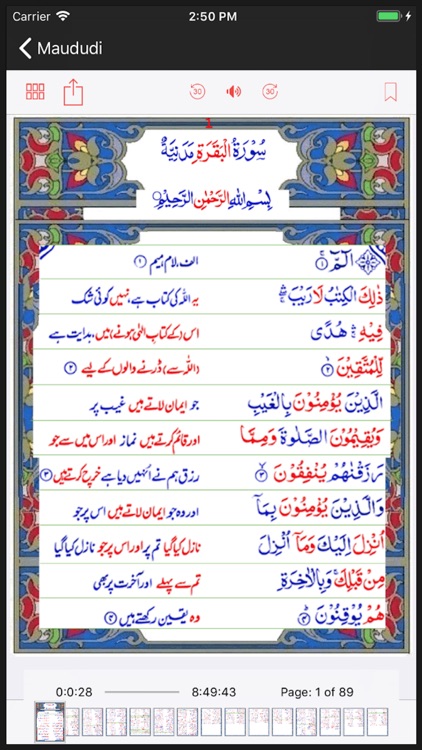 Carrier 2:50 PM
Maududi
30 30
1
سُوْرَةُ الْبَقَرَةِ مَدَنِيَّةٌ
بِسْمِ اللهِ الرَّحْمٰنِ الرَّحِيْمِ
الٓمّٓ ۚ ۝۱ الف، لام، میم ۝۱
ذٰلِكَ الْكِتٰبُ لَا رَيْبَ ۛ یہ اللہ کی کتاب ہے، نہیں کوئی شک
فِيْهِ ۛ هُدًى اس (کے کتاب الٰہی ہونے) میں، ہدایت ہے
لِّلْمُتَّقِيْنَ ۝۲ (اللہ سے) ڈرنے والوں کے لیے ۝۲
الَّذِيْنَ يُؤْمِنُوْنَ بِالْغَيْبِ جو ایمان لاتے ہیں غیب پر
وَيُقِيْمُوْنَ الصَّلٰوةَ وَمِمَّا اور قائم کرتے ہیں نماز اور اس میں سے جو
رَزَقْنٰهُمْ يُنْفِقُوْنَ ۝۳ رزق ہم نے انہیں دیا ہے خرچ کرتے ہیں ۝۳
وَالَّذِيْنَ يُؤْمِنُوْنَ بِمَآ اور وہ جو ایمان لاتے ہیں اس پر جو
اُنْزِلَ اِلَيْكَ وَمَآ اُنْزِلَ نازل کیا گیا تم پر اور اس پر جو نازل کیا گیا
مِنْ قَبْلِكَ ۚ وَبِالْاٰخِرَةِ تم سے پہلے اور آخرت پر بھی
هُمْ يُوْقِنُوْنَ ۝۴ وہ یقین رکھتے ہیں ۝۴
0:0:28 8:49:43 Page: 1 of 89